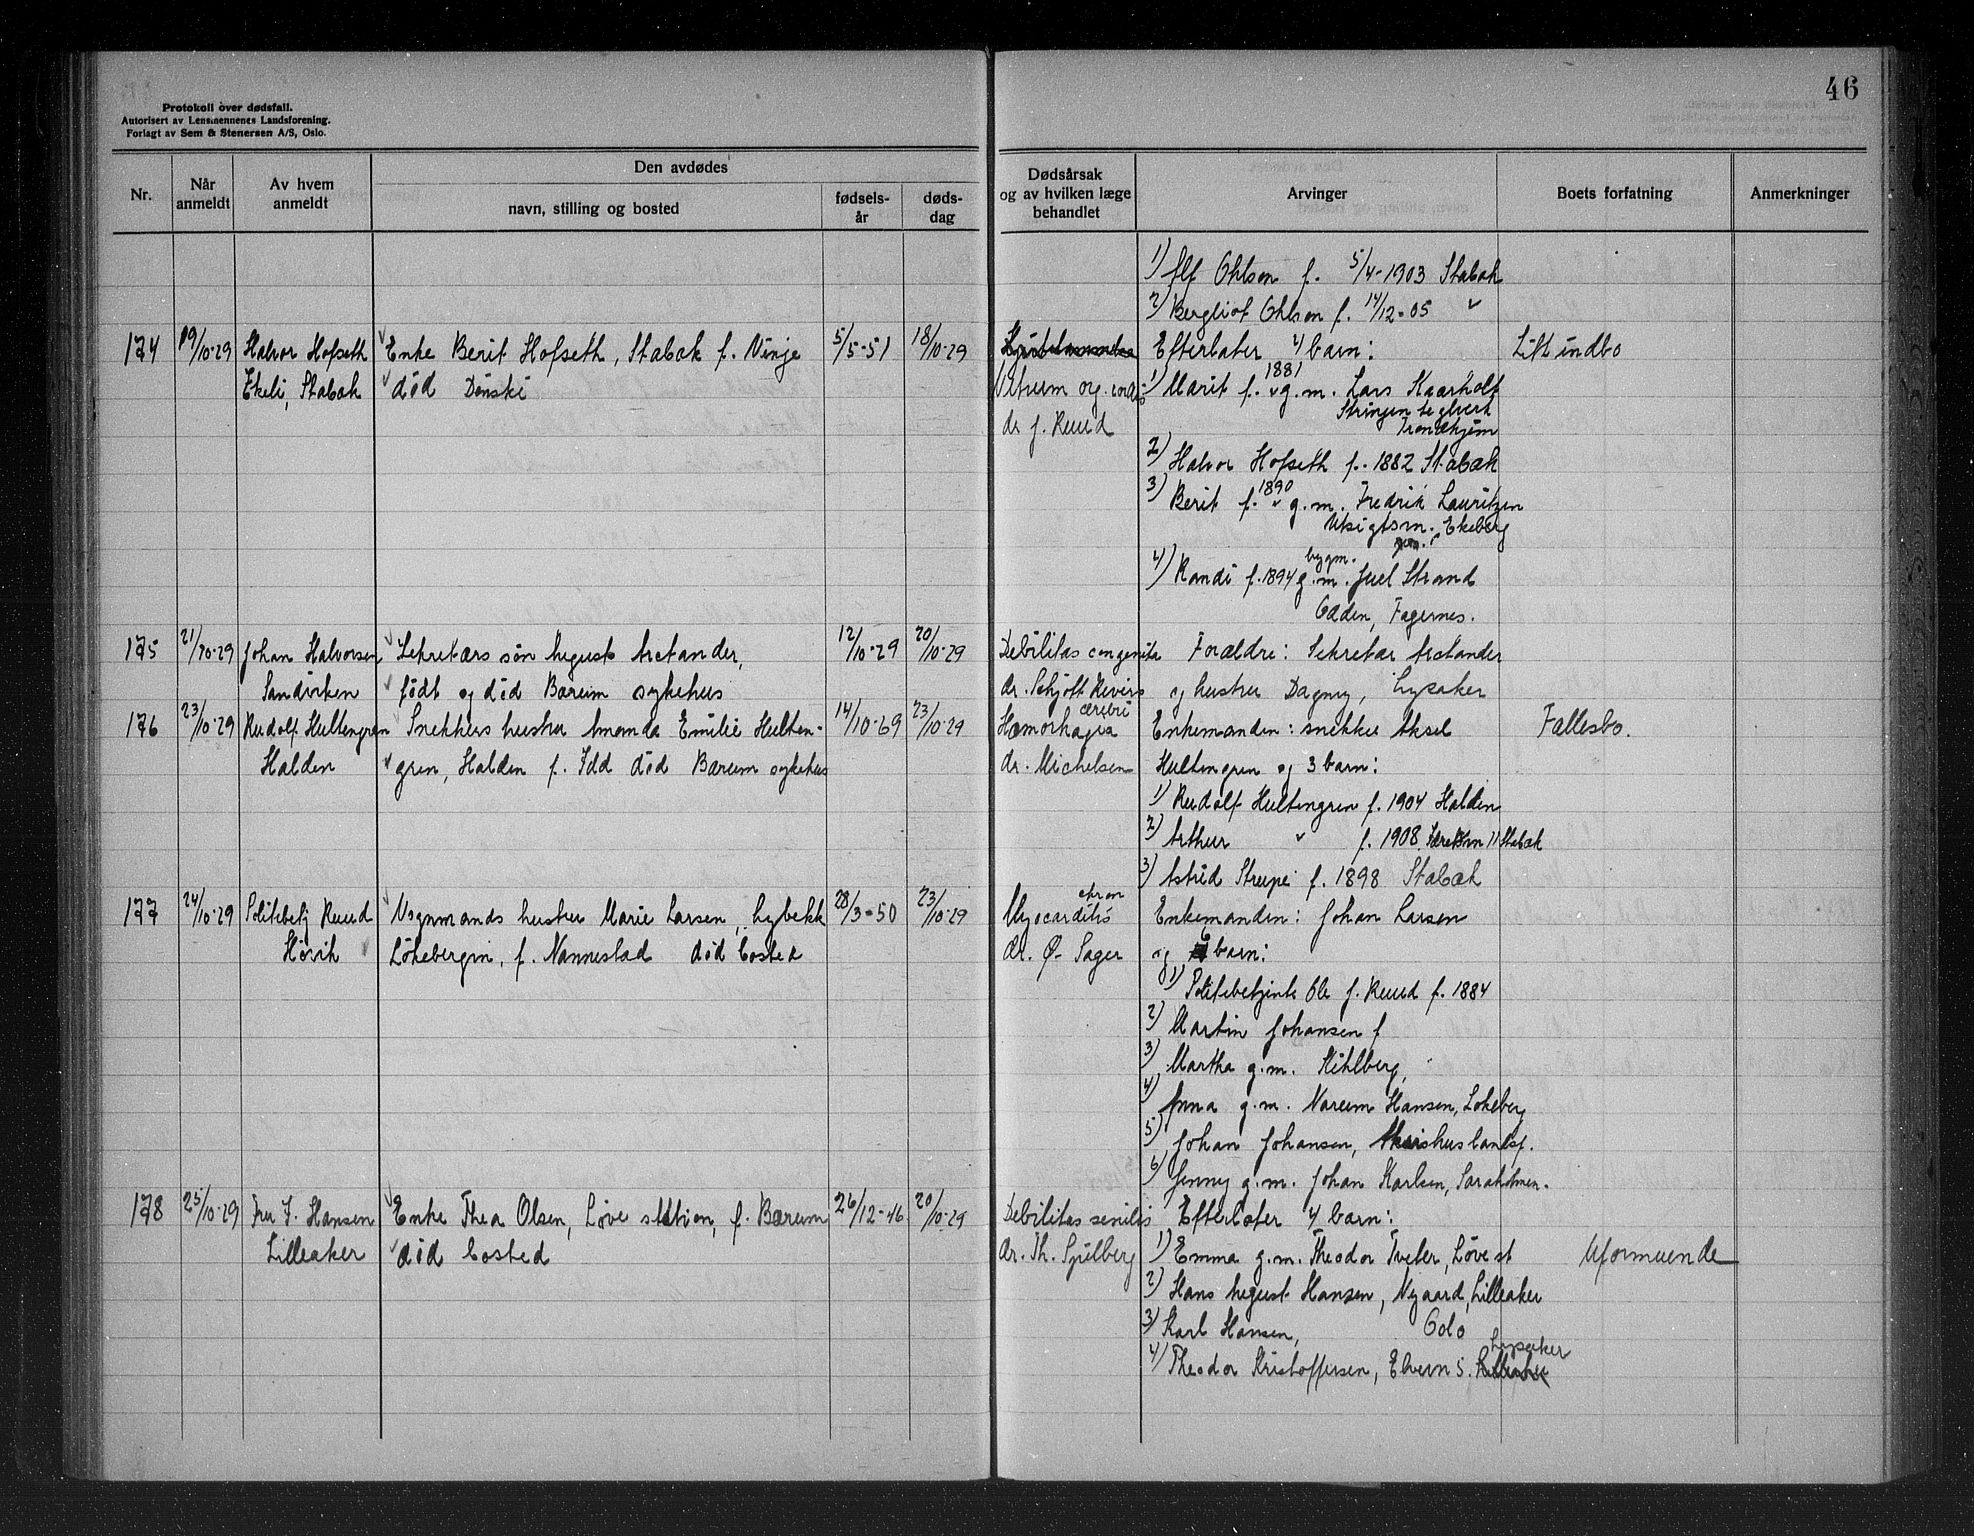 46
Protokoll over dødsfall.
Autorisert av Lensmennenes Landsforening.
Forlagt av Sem & Stenersen A/S, Oslo.
Nr.
Når anmeldt
Av hvem anmeldt
Den avdødes
navn, stilling og bosted
fødsels-år
døds-dag
Dødsårsak
og av hvilken læge
behandlet
Arvinger
Boets forfatning
Anmerkninger
1) Alf Ohlson f. 5/4-1903 Stabæk
2) Bergliot Ohlson f. 14/12-05 "
174 19/10-29 Halvor Hofseth Enke Berit Hofseth, Stabæk f. Vinje 5/5-51 18/10-29 Efterlater 4 barn: Litt indbo
Ekeli, Stabæk død Dønski Vitium org. cordis 1) Marit f. 1881 g.m. Lars Kaarholt
dr J. Ruud teglverk
Trondhjem
2) Halvor Hofseth f. 1882 Stabæk
3) Berit f. 1890 g.m. Fredrik Lauritzen
Utsigtsm. Ekeberg
4) Randi f. 1894 g.m. bygm. Juel Strand
Odden, Fagernes.
175 21/10-29 Johan Halvorsen Sekretærs søn August Arctander, 12/10-29 20/10-29 Debilitas congenita Forældre: Sekretær Arctander
Sandviken født og død Bærum sykehus dr. Schjøtt Revers og hustru Dagny, Lysaker
176 23/10-29 Rudolf Hultengren Snekkers hustru Amanda Emilie Hulten- 14/10-69 23/10-29 Hæmorhagia cerebri Enkemanden: snekker Aksel Fallesbo.
Halden gren, Halden f. Idd død Bærum sykehus dr. Michelsen Hultengren og 3 barn:
1) Rudolf Hultengren f. 1904 Halden
2) Arthur " f. 1908 11 Stabæk
3) Astrid Strupe f. 1898 Stabæk
177 24/10-29 Politibetj Ruud Vognmands hustru Marie Larsen, Lybekk 28/3-50 23/10-29 Myocarditis chron Enkemanden: Johan Larsen
Høvik Løkebergvn, f. Nannestad død bosted dr. Ø. Sager og 6 barn:
1) Politibetjent Ole J. Ruud f. 1884
2) Martin Johansen f
3) Martha g.m. Kihlberg,
4) Anna g.m. Nareum Hansen, Løkeberg
5) Johan Johansen, Akershus landsf.
6) Jenny g.m. Johan Karlsen, Saraholmen.
178 25/10-29 Fru J. Hansen Enke Thea Olsen, Løve station, f. Bærum 26/12-46 20/10-29 Debilitas senilis Efterlater 4 barn:
Lilleaker død bosted dr. Th. Spilberg 1) Emma g.m. Theodor Tveter, Løve st Uformuende
2) Hans August Hansen, Nygaard, Lilleaker
3) Karl Hansen, Oslo
4) Theodor Kristoffersen, Elvern 5. Lilleaker Lysaker